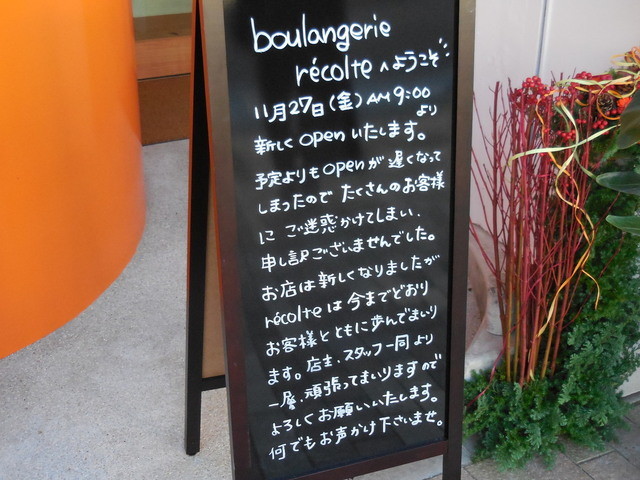 boulangerie
récolte へようこそ
11月27日(金)AM9:00
より
新しくopenいたします。
予定よりもopenが遅くなって
しまったので たくさんのお客様
に ご迷惑かけてしまい、
申し訳ございませんでした。
お店は新しくなりましたが
récolteは今までどおり
お客様とともに歩んでまいり
ます。店主、スタッフ一同より
一層、頑張ってまいりますので
よろしくお願いいたします。
何でもお声かけ下さいませ。